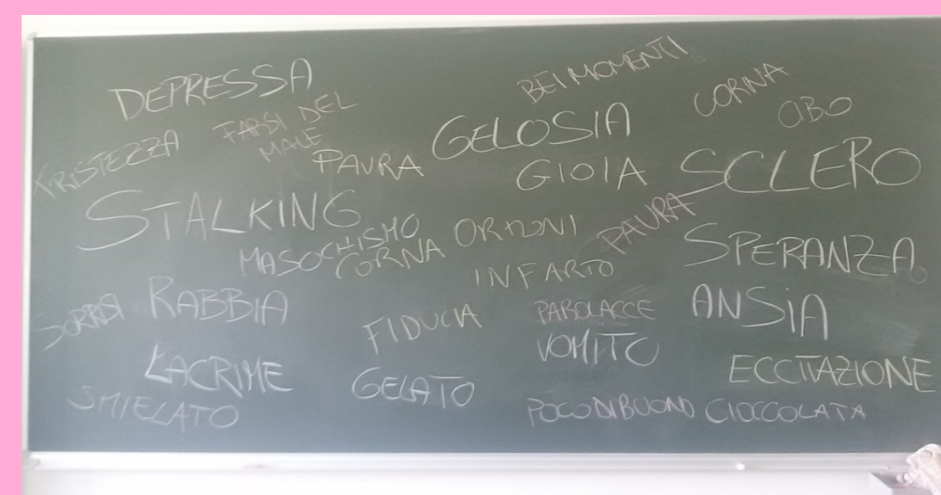 DEPRESSA
BEI MOMENTI
CORNA
CIBO
TRISTEZZA
FARSI DEL
MALE
PAURA
GELOSIA
GIOIA
SCLERO
STALKING
MASOCHISMO
CORNA
ORMONI
PAURA
SPERANZA
INFARTO
SORRISI
RABBIA
FIDUCIA
PAROLACCE
ANSiA
VOMITO
LACRIME
GELATO
ECCITAZIONE
SMIELATO
POCO DI BUONO
CIOCCOLATA